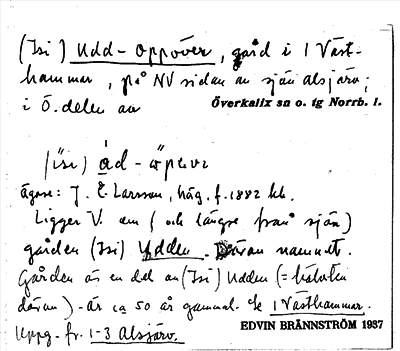 (Isi) Udd-Oppöver, gård i 1 Väst-
hammar, på NV sidan av sjön Alsjärv;
i Ö. delen av
Överkalix sn o. tg Norrb. l.
(ɩ̈sɩ) ád-
ägare: J. E. Larsson, häg. f. 1882 hb.
Ligger V. om (och längre från sjön)
gården (Isi) Udden. Därav namnet.
Gården är en del av (Isi) Udden (= 
därav) - är ca 50 år gammal. Se 1 Västhammar.
Uppg. fr. 1-3 Alsjärv.
EDVIN BRÄNNSTRÖM 1937